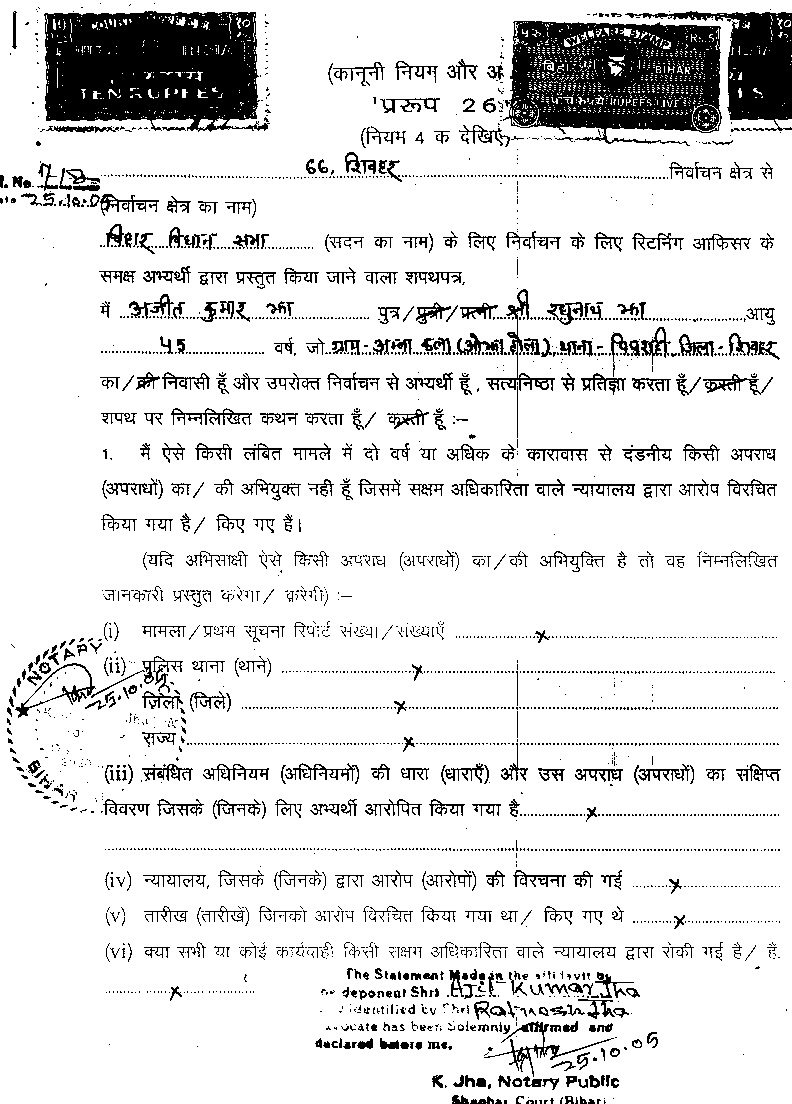 TEN RUPEES
WELFARE STAMP
Rs.5
BIHAR
(कानूनी नियम और अ
'प्ररूप 26'
(नियम 4 क देखिए)
66, शिवहर निर्वाचन क्षेत्र से
No 718
25.10.05
(निर्वाचन क्षेत्र का नाम)
बिहार विधान सभा (सदन का नाम) के लिए निर्वाचन के लिए रिटर्निंग आफिसर के
समक्ष अभ्यर्थी द्वारा प्रस्तुत किया जाने वाला शपथपत्र,
मैं अजीत कुमार झा पुत्र/पुत्री/पत्नी श्री रघुनाथ झा आयु
45 वर्ष, जो ग्राम- थाना- पिपराही जिला-शिवहर
का/की निवासी हूँ और उपरोक्त निर्वाचन से अभ्यर्थी हूँ, सत्यनिष्ठा से प्रतिज्ञा करता हूँ/करती हूँ/
शपथ पर निम्नलिखित कथन करता हूँ/ करती हूँ :–
1. मैं ऐसे किसी लंबित मामले में दो वर्ष या अधिक के कारावास से दंडनीय किसी अपराध
(अपराधों) का/ की अभियुक्त नही हूँ जिसमें सक्षम अधिकारिता वाले न्यायालय द्वारा आरोप विरचित
किया गया है/ किए गए हैं।
(यदि अभिसाक्षी ऐसे किसी अपराध (अपराधों) का/की अभियुक्ति है तो वह निम्नलिखित
जानकारी प्रस्तुत करेगा/ करेगी) :–
(i) मामला/प्रथम सूचना रिपोर्ट संख्या/संख्याएँ x
(ii) पुलिस थाना (थाने) x
जिला (जिले) x
राज्य x
NOTARY
25.10.05
BIHAR
(iii) संबंधित अधिनियम (अधिनियमों) की धारा (धाराएँ) और उस अपराध (अपराधों) का संक्षिप्त
विवरण जिसके (जिनके) लिए अभ्यर्थी आरोपित किया गया है x
(iv) न्यायालय, जिसके (जिनके) द्वारा आरोप (आरोपों) की विरचना की गई x
(v) तारीख (तारीखें) जिनको आरोप विरचित किया गया था/ किए गए थे x
(vi) क्या सभी या कोई कार्यवाही किसी सक्षम अधिकारिता वाले न्यायालय द्वारा रोकी गई है/ हैं.
x
The Statement Made in the affidavit by
deponent Shri Ajit Kumar Jha
identified by Shri Ratnesh Jha
has been Solemnly affirmed and
declared before me.
25.10.05
K. Jha, Notary Public
Sheohar Court (Bihar)